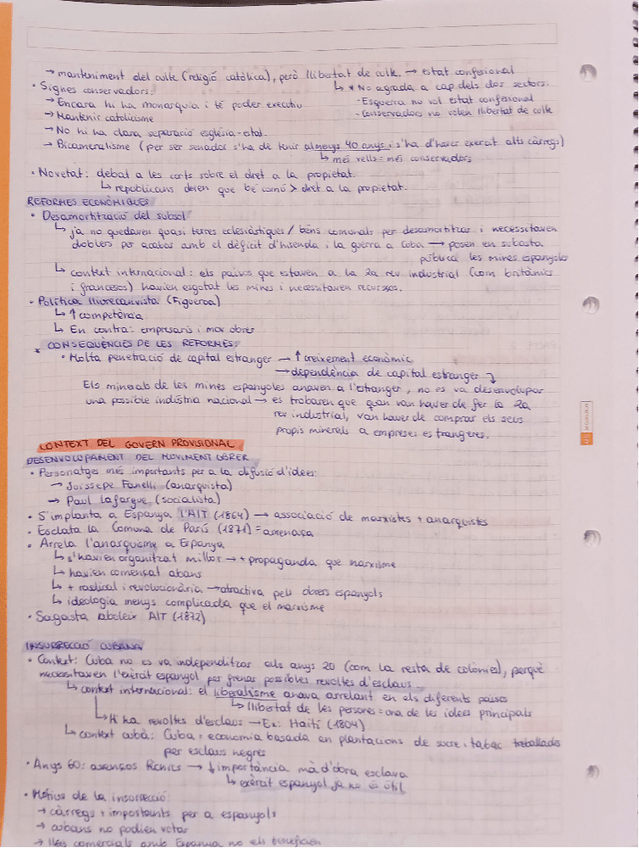 → manteniment del culte (religió catòlica), però llibertat de culte → estat confesional
↳ * No agrada a cap dels dos sectors:
- Esquerra no vol estat confesional
- Conservadors no volen llibertat de culte
• Signes conservadors:
→ Encara hi ha monarquia i té poder executiu
→ Mantenir catolicisme
→ No hi ha clara separació església-estat
→ Bicameralisme (per ser senador s'ha de tenir almenys 40 anys i s'ha d'haver exercit alts càrrecs)
↳ més vells = més conservadors
• Novetat: debat a les corts sobre el dret a la propietat.
↳ republicans deien que bé comú > dret a la propietat.
REFORMES ECONÒMIQUES
• Desamortització del subsòl
↳ ja no quedaven quasi terres eclesiàstiques / béns comunals per desamortitzar i necessitaven
doblers per acabar amb el dèficit d'hisenda i la guerra a Cuba → posen en subasta
pública les mines espanyoles
↳ context internacional: els països que estaven a la 2a rev industrial (com britànics
i francesos) havien esgotat les mines i necessitaven recursos.
• Política lliurecanvista (Figuerola)
↳ ↑ competència
↳ En contra: empresaris i mov obrer
* CONSEQÜÈNCIES DE LES REFORMES:
• Molta penetració de capital estranger → ↑ creixement econòmic
→ dependència de capital estranger
Els minerals de les mines espanyoles anaven a l'estranger, no es va desenvolupar
una possible indústria nacional → es trobaren que quan van haver de fer la 2a
rev industrial, van haver de comprar els seus
propis minerals a empreses estrangeres.
CONTEXT DEL GOVERN PROVISIONAL
DESENVOLUPAMENT DEL MOVIMENT OBRER
• Personatges més importants per a la difusió d'idees:
→ Juissepe Fanelli (anarquista)
→ Paul Lafargue (socialista)
• S'implanta a Espanya l'AIT (1864) → associació de marxistes + anarquistes
• Esclata la Comuna de París (1871) = amenaça
• Arrela l'anarquisme a Espanya
↳ s'havien organitzat millor → + propaganda que marxisme
↳ havien començat abans
↳ + radical i revolucionària → atractiva pels obrers espanyols
↳ ideologia menys complicada que el marxisme
• Sagasta aboleix AIT (1872)
INSURRECCIÓ CUBANA
• Context: Cuba no es va independitzar als anys 20 (com la resta de colònies), perquè
necessitaven l'exèrcit espanyol per frenar possibles revoltes d'esclaus
↳ context internacional: el liberalisme anava arrelant en els diferents països
↳ llibertat de les persones = una de les idees principals
↳ Hi ha revoltes d'esclaus → Ex: Haití (1804)
↳ context cubà: Cuba = economia basada en plantacions de sucre i tabac treballades
per esclaus negres
• Anys 60: avenços tècnics → ↓ importància mà d'obra esclava
↳ exèrcit espanyol ja no és útil
• Motius de la insurrecció:
→ càrrecs + importants per a espanyols
→ cubans no podien votar
→ lleis comercials amb Espanya no els beneficien